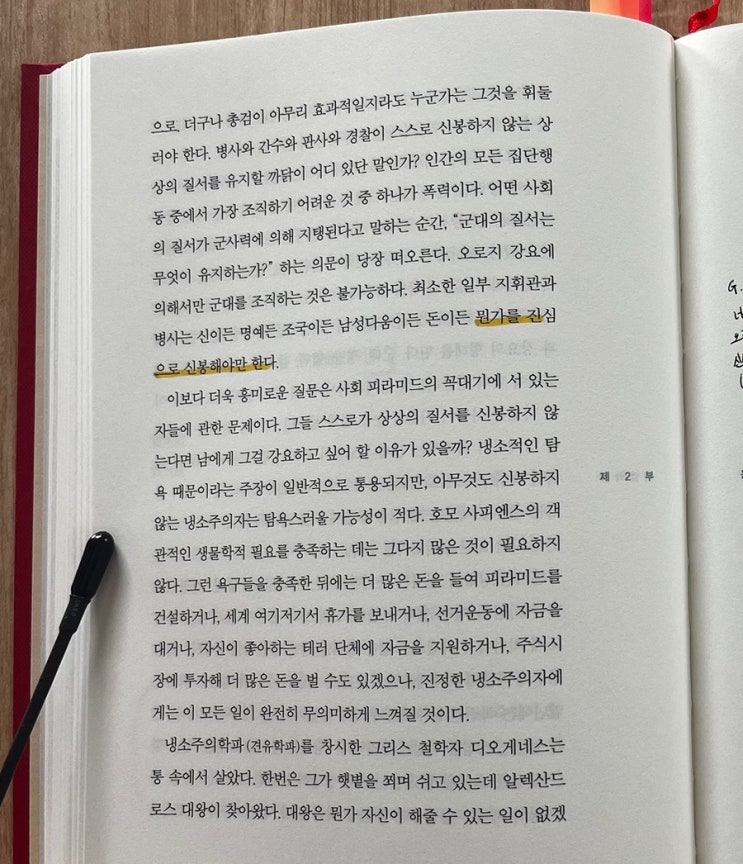 으로. 더구나 총검이 아무리 효과적일지라도 누군가는 그것을 휘둘
러야 한다. 병사와 간수와 판사와 경찰이 스스로 신봉하지 않는 상
상의 질서를 유지할 까닭이 어디 있단 말인가? 인간의 모든 집단행
동 중에서 가장 조직하기 어려운 것 중 하나가 폭력이다. 어떤 사회
의 질서가 군사력에 의해 지탱된다고 말하는 순간, “군대의 질서는
무엇이 유지하는가?” 하는 의문이 당장 떠오른다. 오로지 강요에
의해서만 군대를 조직하는 것은 불가능하다. 최소한 일부 지휘관과
병사는 신이든 명예든 조국이든 남성다움이든 돈이든 뭔가를 진심
으로 신봉해야만 한다.
이보다 더욱 흥미로운 질문은 사회 피라미드의 꼭대기에 서 있는
자들에 관한 문제이다. 그들 스스로가 상상의 질서를 신봉하지 않
는다면 남에게 그걸 강요하고 싶어 할 이유가 있을까? 냉소적인 탐
욕 때문이라는 주장이 일반적으로 통용되지만, 아무것도 신봉하지
않는 냉소주의자는 탐욕스러울 가능성이 적다. 호모 사피엔스의 객
관적인 생물학적 필요를 충족하는 데는 그다지 많은 것이 필요하지
않다. 그런 욕구들을 충족한 뒤에는 더 많은 돈을 들여 피라미드를
건설하거나, 세계 여기저기서 휴가를 보내거나, 선거운동에 자금을
대거나, 자신이 좋아하는 테러 단체에 자금을 지원하거나, 주식시
장에 투자해 더 많은 돈을 벌 수도 있겠으나, 진정한 냉소주의자에
게는 이 모든 일이 완전히 무의미하게 느껴질 것이다.
냉소주의학파(견유학파)를 창시한 그리스 철학자 디오게네스는
통 속에서 살았다. 한번은 그가 햇볕을 쬐며 쉬고 있는데 알렉산드
로스 대왕이 찾아왔다. 대왕은 뭔가 자신이 해줄 수 있는 일이 없겠
제 2 부
G.